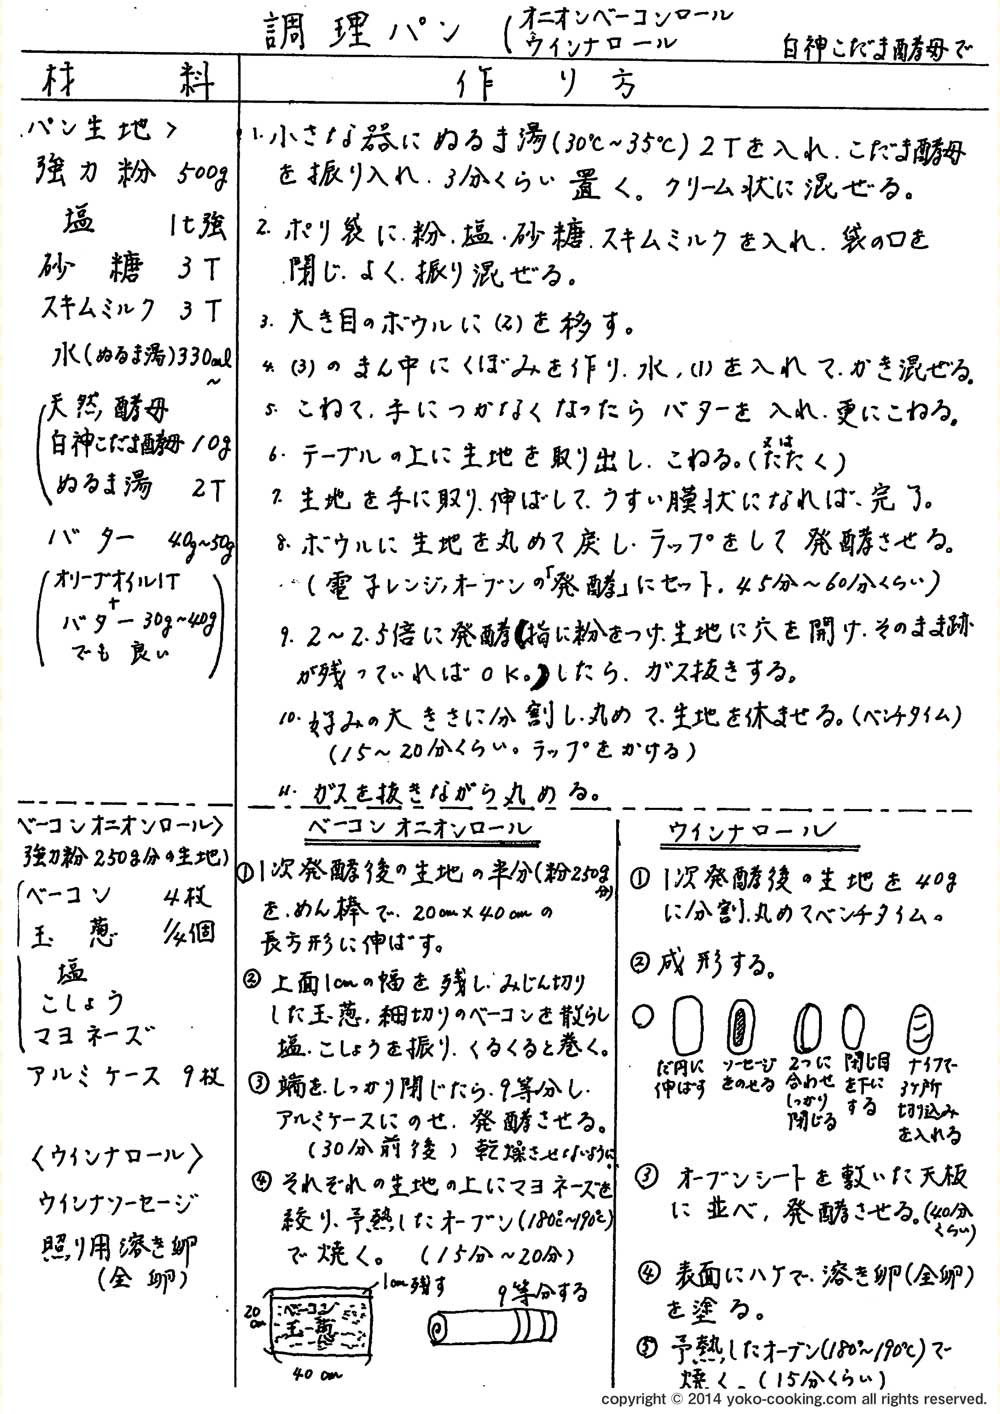 調理パン (オニオンベーコンロール
ウインナロール
白神こだま酵母で
材料
作り方
パン生地>
強力粉 500g
塩 1t強
砂糖 3T
スキムミルク 3T
水(ぬるま湯)330ml
~
天然酵母
白神こだま酵母 10g
ぬるま湯 2T
バター 40g~50g
オリーブオイル1T
+
バター30g~40g
でも良い
1. 小さな器にぬるま湯(30℃~35℃)2Tを入れ、こだま酵母
を振り入れ、3分くらい置く。クリーム状に混ぜる。
2. ポリ袋に、粉、塩、砂糖、スキムミルクを入れ、袋の口を
閉じ、よく、振り混ぜる。
3. 大き目のボウルに(2)を移す。
4. (3)のまん中にくぼみを作り、水、(1)を入れて、かき混ぜる。
5. こねて、手につかなくなったらバターを入れ、更にこねる。
6. テーブルの上に生地を取り出し、こねる。(又はたたく)
7. 生地を手に取り、伸ばして、うすい膜状になれば、完了。
8. ボウルに生地を丸めて戻し、ラップをして発酵させる。
(電子レンジ、オーブンの「発酵」にセット、45分~60分くらい)
9. 2~2.5倍に発酵(指に粉をつけ、生地に穴を開け、そのまま跡
が残っていればOK。)したら、ガス抜きする。
10. 好みの大きさに分割し、丸めて、生地を休ませる。(ベンチタイム)
(15~20分くらい。ラップをかける)
11. ガスを抜きながら丸める。
ベーコンオニオンロール>
強力粉250g分の生地)
ベーコン 4枚
玉葱 1/4個
塩
こしょう
マヨネーズ
アルミケース 9枚
<ウインナロール>
ウインナソーセージ
照り用溶き卵
(全卵)
ベーコンオニオンロール
① 1次発酵後の生地の半分(粉250g分)
を、めん棒で、20cm×40cmの
長方形に伸ばす。
② 上面1cmの幅を残し、みじん切り
した玉葱、細切りのベーコンを散らし
塩、こしょうを振り、くるくると巻く。
③ 端を、しっかり閉じたら、9等分し、
アルミケースにのせ、発酵させる。
(30分前後)乾燥させないように
④ それぞれの生地の上にマヨネーズを
絞り、予熱したオーブン(180℃~190℃)
で焼く。(15分~20分)
1cm残す
20cm
ベーコン
玉葱
40cm
9等分する
ウインナロール
① 1次発酵後の生地を40g
に分割、丸めてベンチタイム。
② 成形する。
だ円に
伸ばす
ソーセージ
をのせる
2つに
合わせ
しっかり
閉じる
閉じ目
を下に
する
ナイフで
3ヶ所
切り込み
を入れる
③ オーブンシートを敷いた天板
に並べ、発酵させる。(40分くらい)
④ 表面にハケで、溶き卵(全卵)
を塗る。
⑤ 予熱したオーブン(180°~190℃)で
焼く。(15分くらい)
copyright © 2014 yoko-cooking.com all rights reserved.